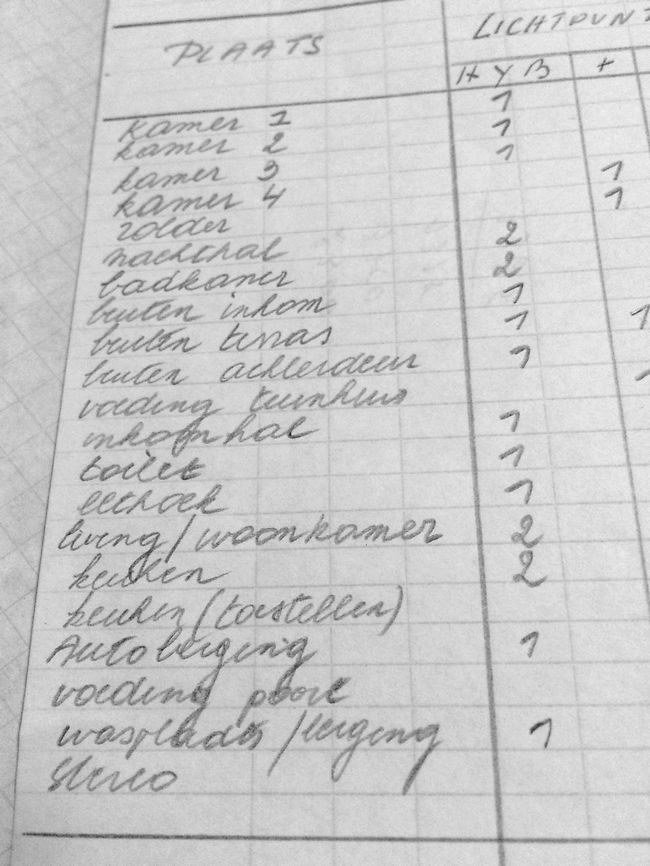 PLAATS LICHTPUNT
HYB +
kamer 1 1
kamer 2 1
kamer 3 1
kamer 4 1
zolder 1
nachthal 2
badkamer 2
buiten inkom 1
buiten terras 1 1
buiten achterdeur 1
voeding tuinhuis 1
inkomhal 1
toilet 1
eethoek 1
living/woonkamer 2
keuken 2
keuken (toestellen)
Autoberging 1
voeding poort
wasplaats/berging 1
Stereo